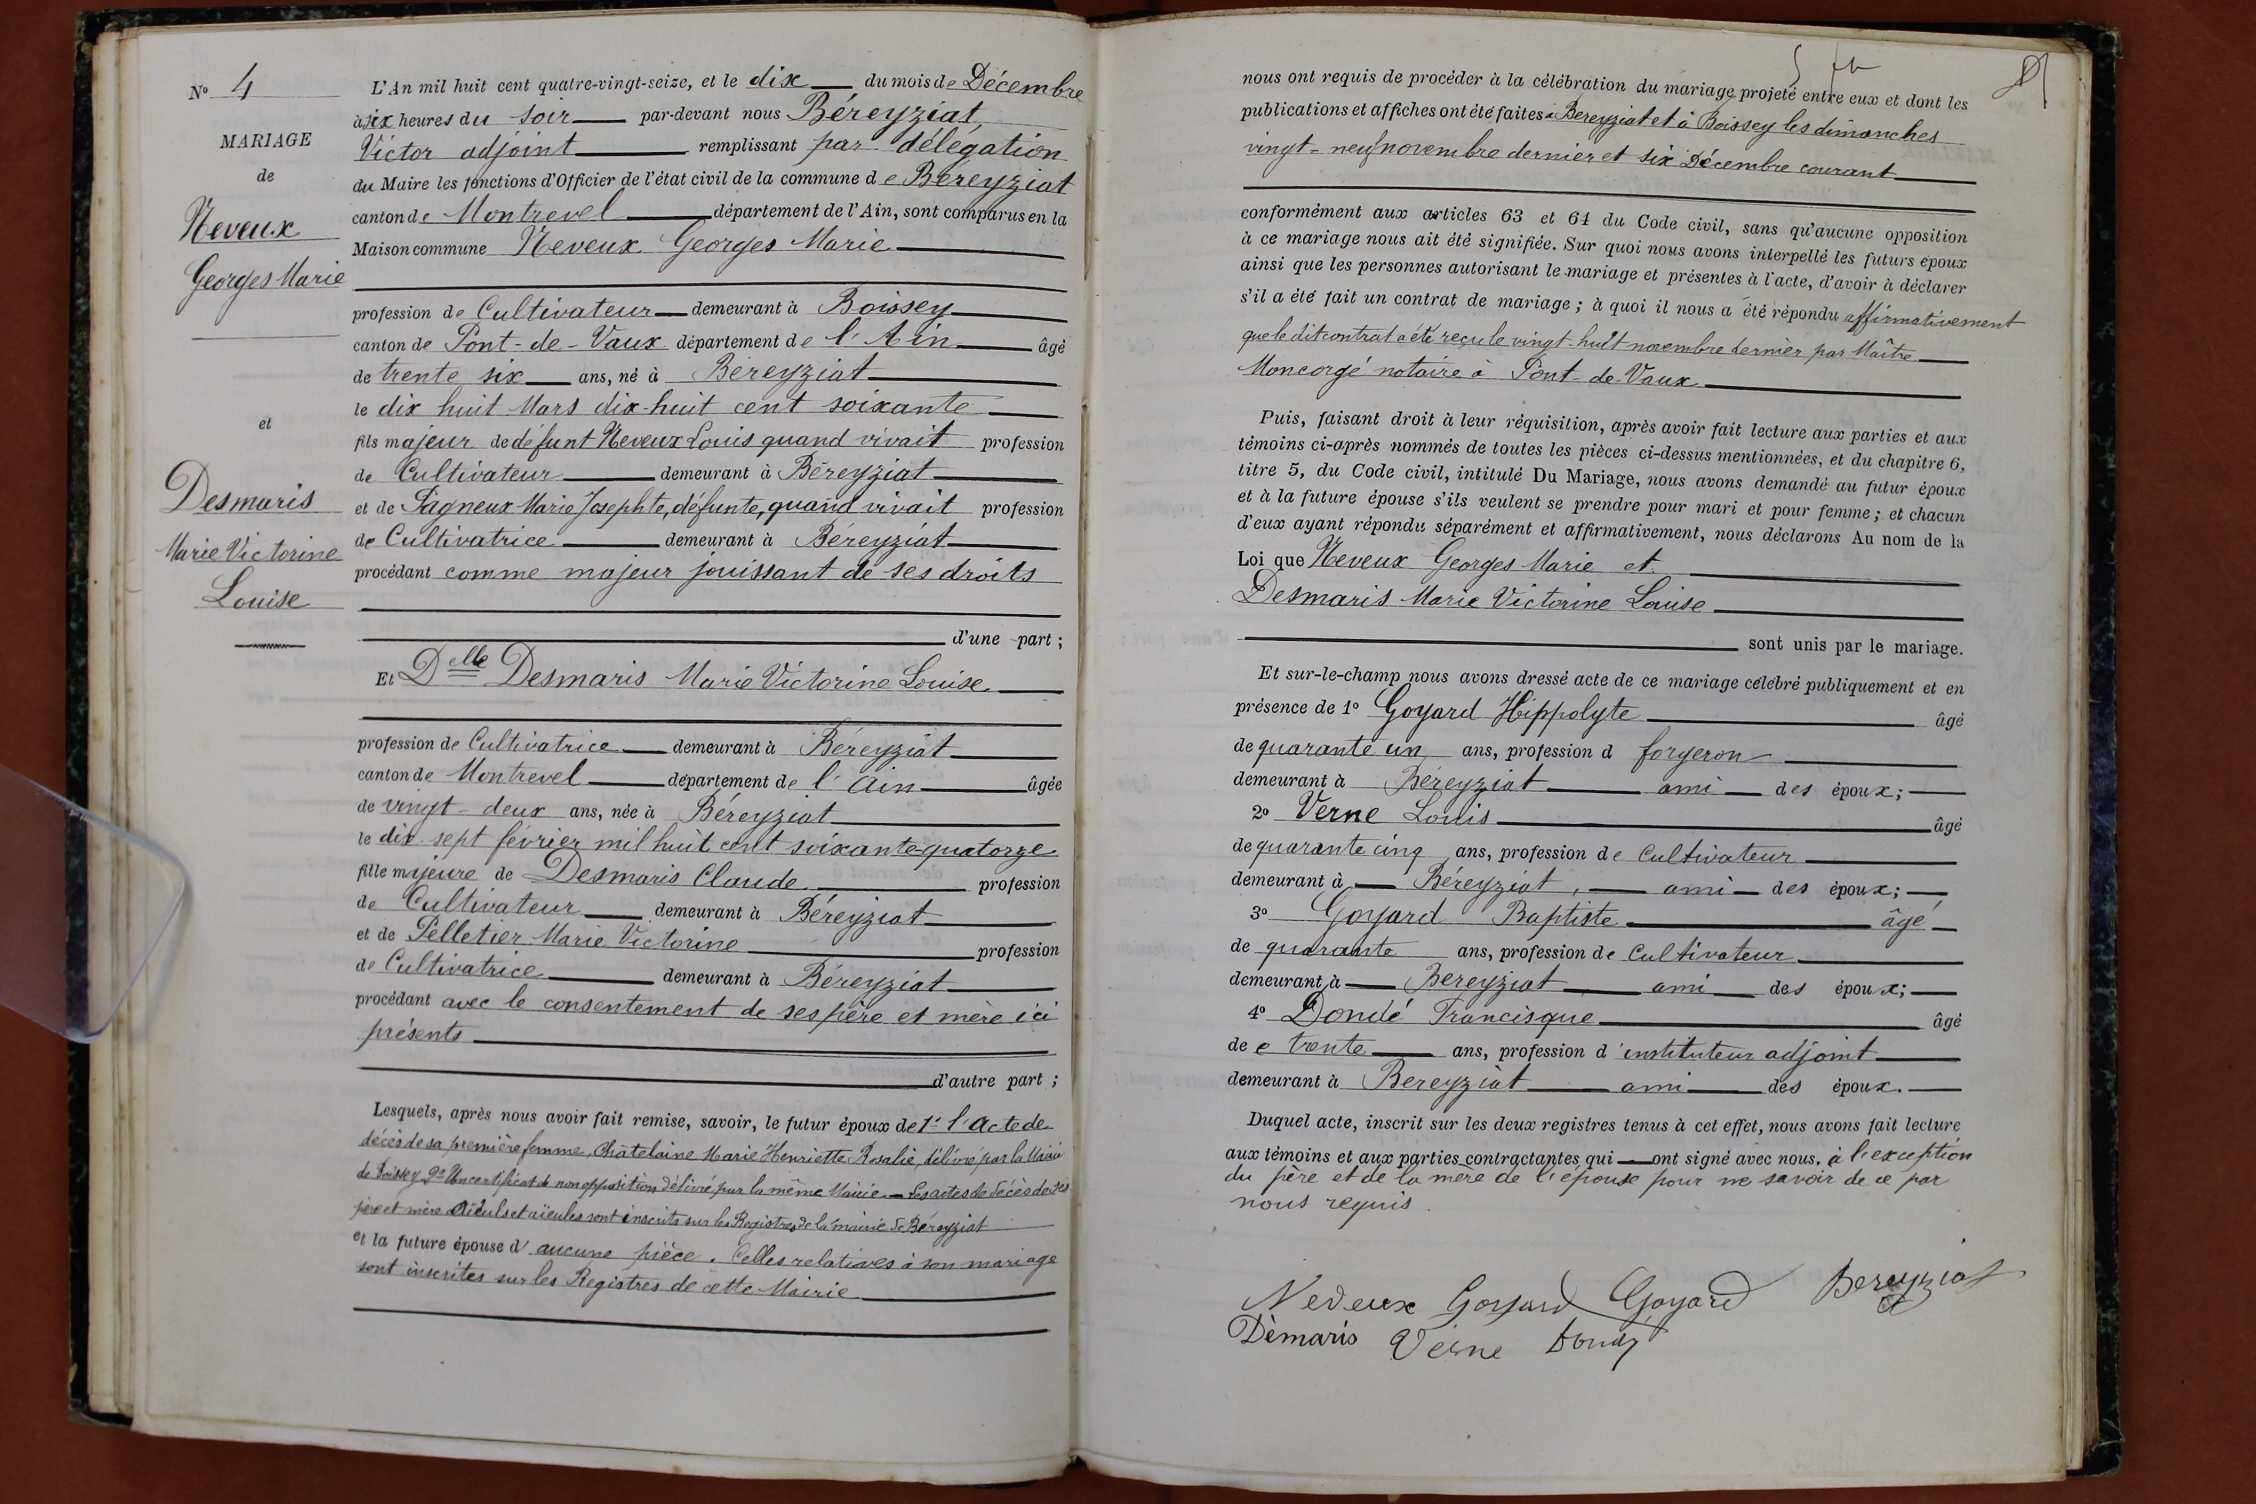 N° 4
MARIAGE
de
Neveux
Georges Marie
et
Desmaris
Marie Victorine
Louise
L'An mil huit cent quatre-vingt-seize, et le dix du mois de Décembre
à six heures du soir par-devant nous Béreyziat
Victor adjoint remplissant par délégation
du Maire les fonctions d'Officier de l'état civil de la commune de Béreyziat
canton de Montrevel département de l'Ain, sont comparus en la
Maison commune Neveux Georges Marie
profession de Cultivateur demeurant à Boissey
canton de Pont-de-Vaux département de l'Ain âgé
de trente six ans, né à Béreyziat
le dix huit Mars dix-huit cent soixante
fils majeur de défunt Neveux Louis quand vivait profession
de Cultivateur demeurant à Béreyziat
et de Pagneux Marie Josephte, défunte, quand vivait profession
de Cultivatrice demeurant à Béreyziat
procédant comme majeur jouissant de ses droits
d'une part ;
Et Delle Desmaris Marie Victorine Louise
profession de Cultivatrice demeurant à Béreyziat
canton de Montrevel département de l'Ain âgée
de vingt-deux ans, née à Béreyziat
le dix sept février mil huit cent soixante-quatorze
fille majeure de Desmaris Claude profession
de Cultivateur demeurant à Béreyziat
et de Pelletier Marie Victorine profession
de Cultivatrice demeurant à Béreyziat
procédant avec le consentement de ses père et mère ici
présents
d'autre part ;
Lesquels, après nous avoir fait remise, savoir, le futur époux de 1° l'Acte de
décès de sa première femme, Châtelaine Marie Henriette Rosalie, délivré par la Mairie
de Boissey 2° Un certificat de non opposition délivré par la même Mairie. Les actes de décès de ses
père et mère aïeuls et aïeules sont inscrits sur les Registres de la mairie de Béreyziat
et la future épouse d'aucune pièce. Celles relatives à son mariage
sont inscrites sur les Registres de cette Mairie
nous ont requis de procéder à la célébration du mariage projeté entre eux et dont les
publications et affiches ont été faites à Béreyziat et à Boissey les dimanches
vingt-neuf novembre dernier et six Décembre courant
conformément aux articles 63 et 64 du Code civil, sans qu'aucune opposition
à ce mariage nous ait été signifiée. Sur quoi nous avons interpellé les futurs époux
ainsi que les personnes autorisant le mariage et présentes à l'acte, d'avoir à déclarer
s'il a été fait un contrat de mariage ; à quoi il nous a été répondu affirmativement
que le dit contrat a été reçu le vingt-huit novembre dernier par Maître
Moncorgé notaire à Pont-de-Vaux
Puis, faisant droit à leur réquisition, après avoir fait lecture aux parties et aux
témoins ci-après nommés de toutes les pièces ci-dessus mentionnées, et du chapitre 6,
titre 5, du Code civil, intitulé Du Mariage, nous avons demandé au futur époux
et à la future épouse s'ils veulent se prendre pour mari et pour femme ; et chacun
d'eux ayant répondu séparément et affirmativement, nous déclarons Au nom de la
Loi que Neveux Georges Marie et
Desmaris Marie Victorine Louise
sont unis par le mariage.
Et sur-le-champ nous avons dressé acte de ce mariage célébré publiquement et en
présence de 1° Goyard Hippolyte âgé
de quarante un ans, profession d forgeron
demeurant à Béreyziat ami des époux ;
2° Verne Louis âgé
de quarante cinq ans, profession de Cultivateur
demeurant à Béreyziat, ami des époux ;
3° Goyard Baptiste âgé
de quarante ans, profession de Cultivateur
demeurant à Bereyziat ami des époux ;
4° Dondé Francisque âgé
de e trente ans, profession d'instituteur adjoint
demeurant à Bereyziat ami des époux.
Duquel acte, inscrit sur les deux registres tenus à cet effet, nous avons fait lecture
aux témoins et aux parties contractantes qui ont signé avec nous. à l'exception
du père et de la mère de l'épouse pour ne savoir de ce par
nous requis.
Neveux Goyard Goyard Bereyziat
Démaris Verne